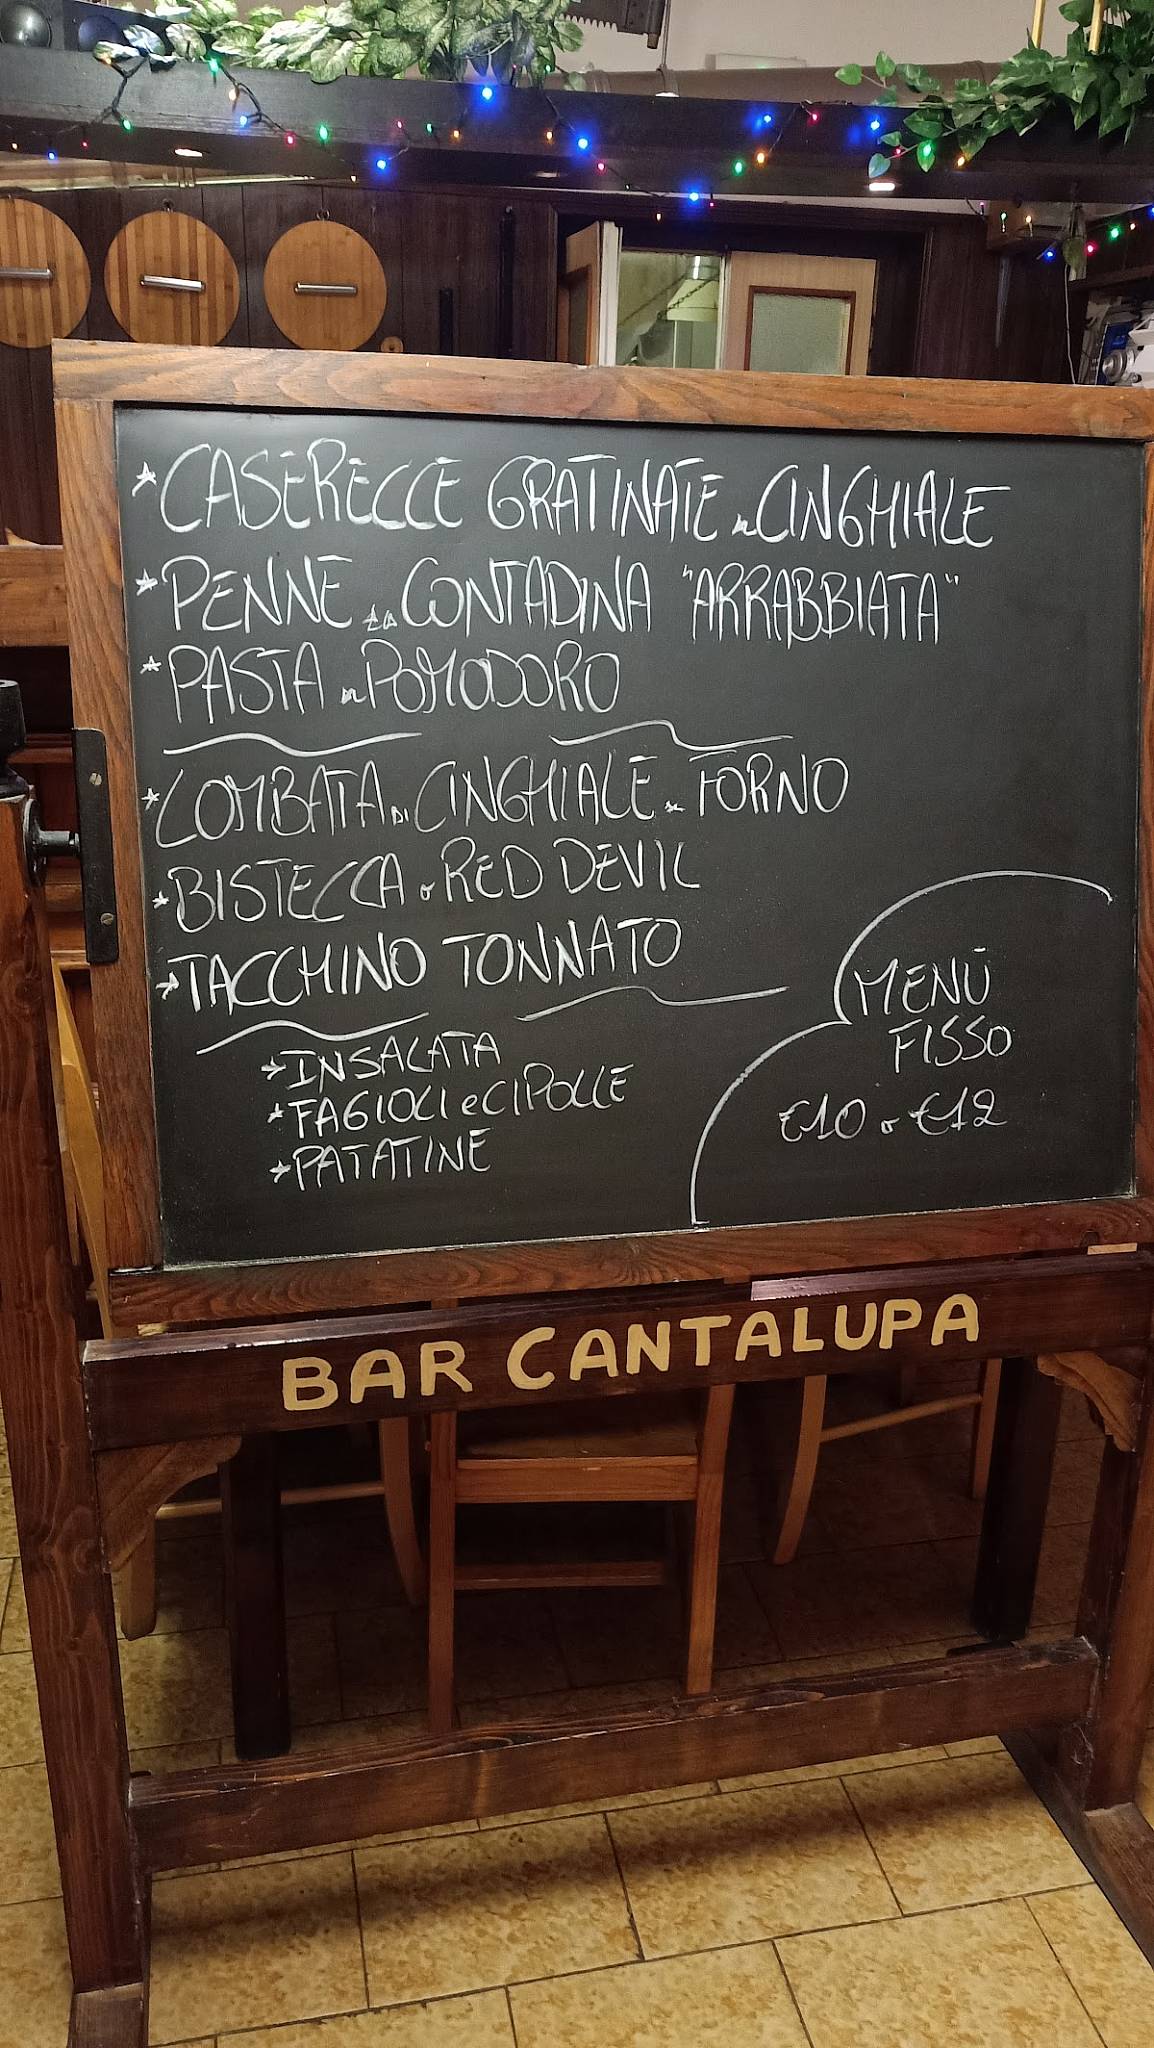 CASERECCE GRATINATE al CINGHIALE
PENNE alla CONTADINA "ARRABBIATA"
PASTA al POMODORO
LOMBATA DI CINGHIALE al FORNO
BISTECCA o RED DEVIL
TACCHINO TONNATO
INSALATA
FAGIOLI e CIPOLLE
PATATINE
MENÙ
FISSO
€10 o €12
BAR CANTALUPA